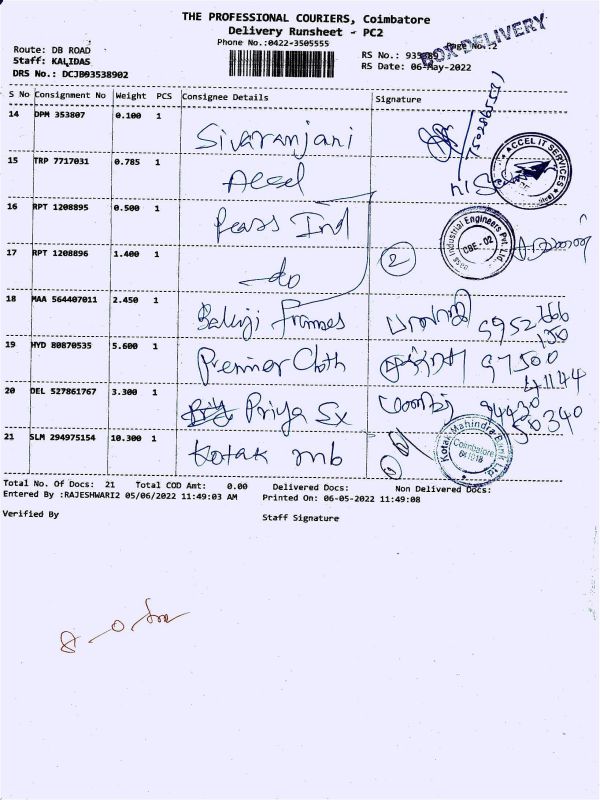 THE PROFESSIONAL COURIERS, Coimbatore
Delivery Runsheet - PC2
Phone No.:0422-3505555
BOX DELIVERY
Page No.:2
Route: DB ROAD
Staff: KALIDAS
DRS No.: DCJB03538902
RS No.:
RS Date: 06-May-2022
S No Consignment No Weight PCS Consignee Details Signature
14 DPM 353807 0.100 1 Sivaranjani
15 TRP 7717031 0.785 1 Accel
ACCEL IT SERVICES
16 RPT 1208895 0.500 1 Pearss Ind
Industrial Engineers Pvt. Ltd
CBE - 02
17 RPT 1208896 1.400 1 do 2
18 MAA 564407011 2.450 1 Balaji Frames
19 HYD 80870535 5.600 1 Premier Cloth 97500
41144
20 DEL 527861767 3.300 1 Priya Sx
50340
21 SLM 294975154 10.300 1 Kotak mb
Kotak Mahindra Bank Ltd
Coimbatore
641018
Total No. Of Docs: 21 Total COD Amt: 0.00 Delivered Docs: Non Delivered Docs:
Entered By :RAJESHWARI2 05/06/2022 11:49:03 AM Printed On: 06-05-2022 11:49:08
Verified By Staff Signature